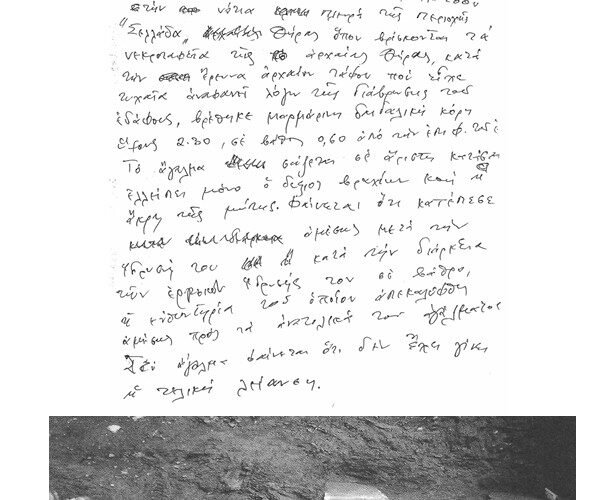 στὴν νότια πλευρὰ τῆς περιοχῆς
"Σελλάδα" Θήρας ὅπου βρίσκονται τὰ
νεκροταφεῖα τῆς ἀρχαίας Θήρας, κατὰ
τὴν ἔρευνα ἀρχαίου τάφου ποὺ εἶχε
τυχαῖα ἀναφανῆ λόγω τῆς διάβρωσης τοῦ
ἐδάφους, βρέθηκε μαρμάρινη δαιδαλικὴ κόρη
ὕψους 2.30, σὲ βάθος 0,60 ἀπὸ τὴν ἐπιφ. τῆς
Τὸ ἄγαλμα σώζεται σὲ ἄριστη κατάσταση
ἐλλείπει μόνο ὁ δεξιὸς βραχίων καὶ ἡ
ἄκρη τῆς μύτης. Φαίνεται ὅτι κατέπεσε
ἀμέσως μετὰ τὴν
ἵδρυσή του ἢ κατὰ τὴν διάρκεια
τῶν ἐργασιῶν ἱδρυσής του σὲ βάθρο,
ἡ εὐθυντηρία τοῦ ὁποίου ἀπεκαλύφθη
ἀμέσως πρὸς τὰ ἀνατολικὰ τοῦ ἀγάλματος
Στὸ ἄγαλμα φαίνεται ὅτι δὲν ἔχει γίνει
ἡ τελικὴ λείανση.